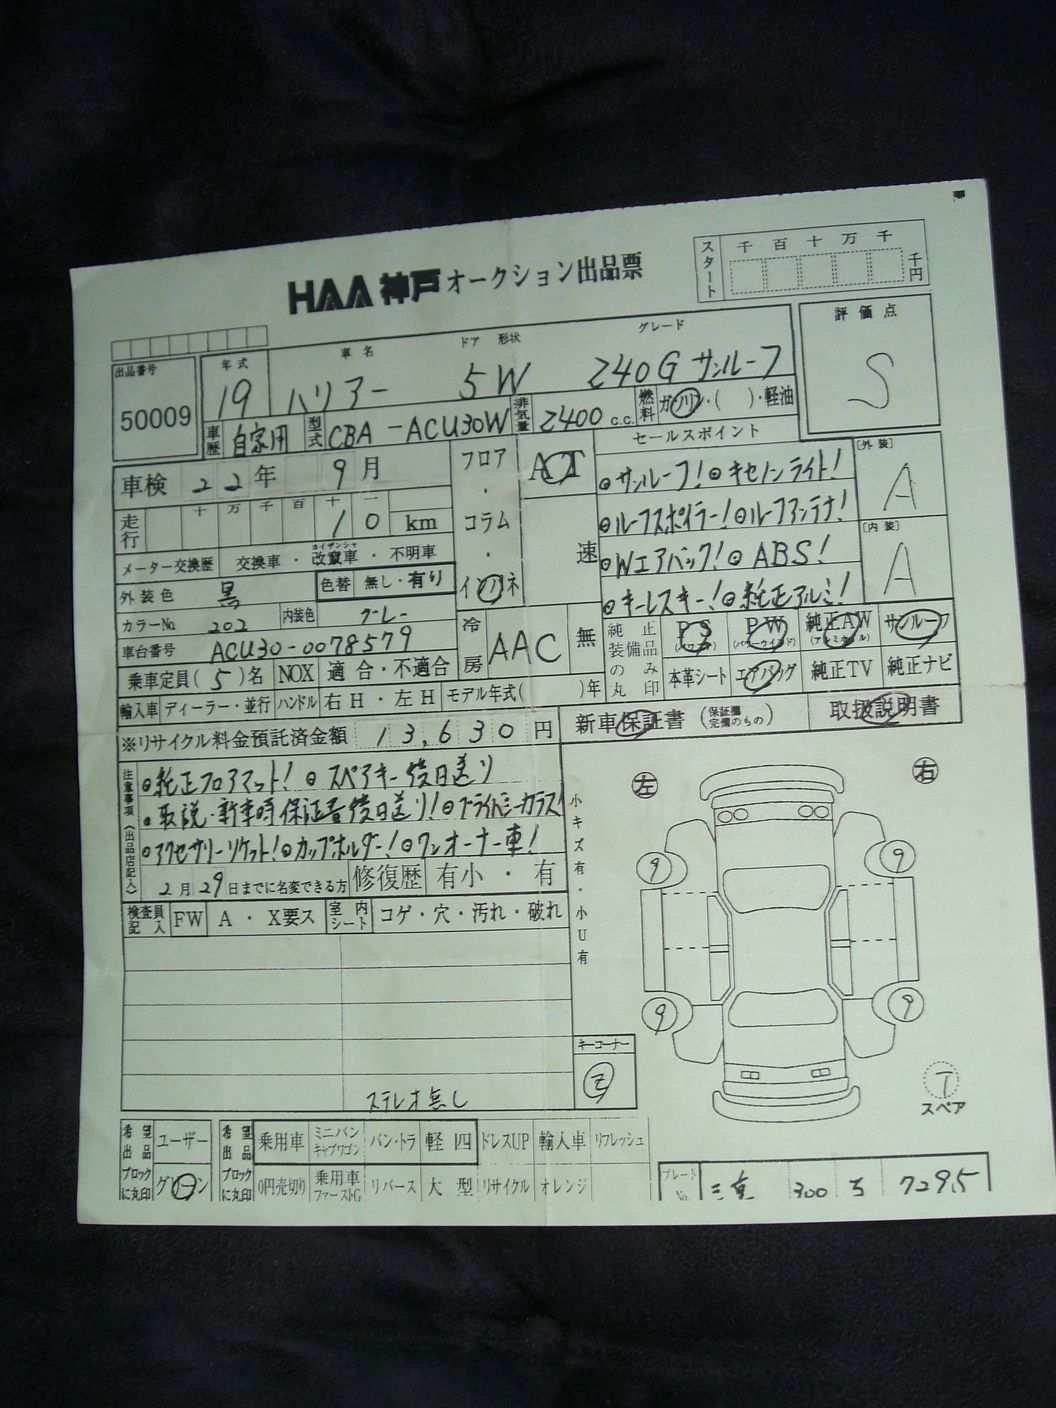 HAA神戸オークション出品票
スタート 千 百 十 万 千 千円
出品番号 50009
年式 19
車名 ハリアー
ドア 形状 5W
グレード 240G サンルーフ
評価点 S
車歴 自家用
型式 CBA-ACU30W
排気量 2400 c.c.
燃料 ガソリン・( )・軽油
車検 22年 9月
フロア・コラム・インパネ
AT 速
セールスポイント
◎サンルーフ!◎キセノンライト!
◎ルーフスポイラー!◎ルーフアンテナ!
◎Wエアバック!◎ABS!
◎キーレスキー!◎純正アルミ!
[外装] A
[内装] A
走行 十 万 千 百 十 一 10 km
メーター交換歴 交換車・改竄車・不明車
カイザンシャ
外装色 黒
色替 無し・有り
カラーNo. 202
内装色 グレー
車台番号 ACU30-0078579
冷房 AAC 無
純正装備品のみ丸印
PS PW 純正AW サンルーフ
本革シート エアバッグ 純正TV 純正ナビ
乗車定員(5)名 NOX 適合・不適合
輸入車 ディーラー・並行 ハンドル 右H・左H モデル年式( )年
新車保証書(保証書完備のもの) 取扱説明書
※リサイクル料金預託済金額 13,630円
注意事項(出品店記入)
◎純正フロアマット!◎スペアキー後日送り
◎取説・新車時保証書後日送り!◎プライバシーガラス!
◎アクセサリーソケット!◎カップホルダー!◎ワンオーナー車!
2月29日までに名変できる方 修復歴 有小・有
検査員記入 FW A・X要ス 室内シート コゲ・穴・汚れ・破れ
小キズ有・小U有
左 右
9 9
9 9
T
スペア
キーコーナー
ステレオ無し
希望出品ブロックに丸印 ユーザー グリーン
希望出品ブロックに丸印 乗用車 ミニバンキャブワゴン バン・トラ 軽四 ドレスUP 輸入車 リフレッシュ
0円売切り 乗用車ファーストG リバース 大型 リサイクル オレンジ
プレートNo. 三重 300 ち 7295